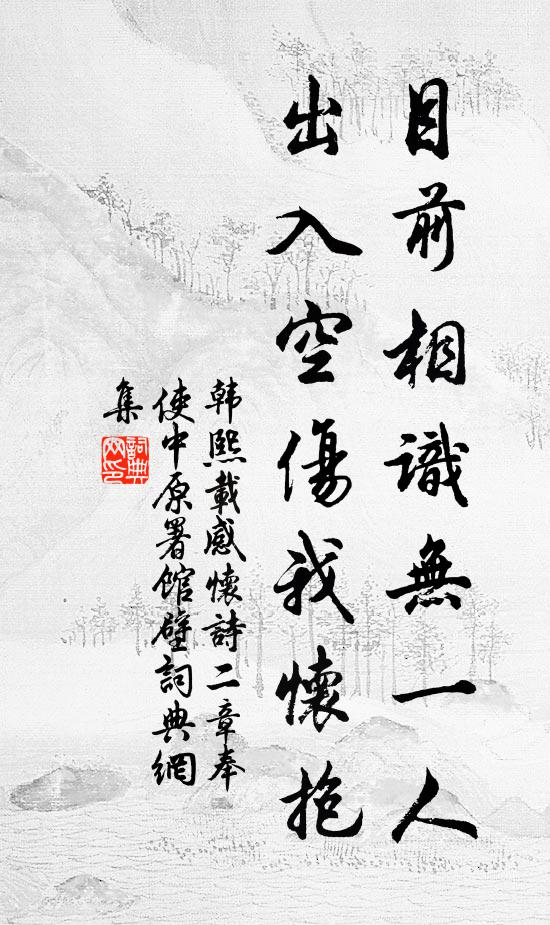 目前相識無一人
出入空傷我懷抱
韩熙載感懷詩二章奉
使中原署馆壁詞典網
集
詞典
网印